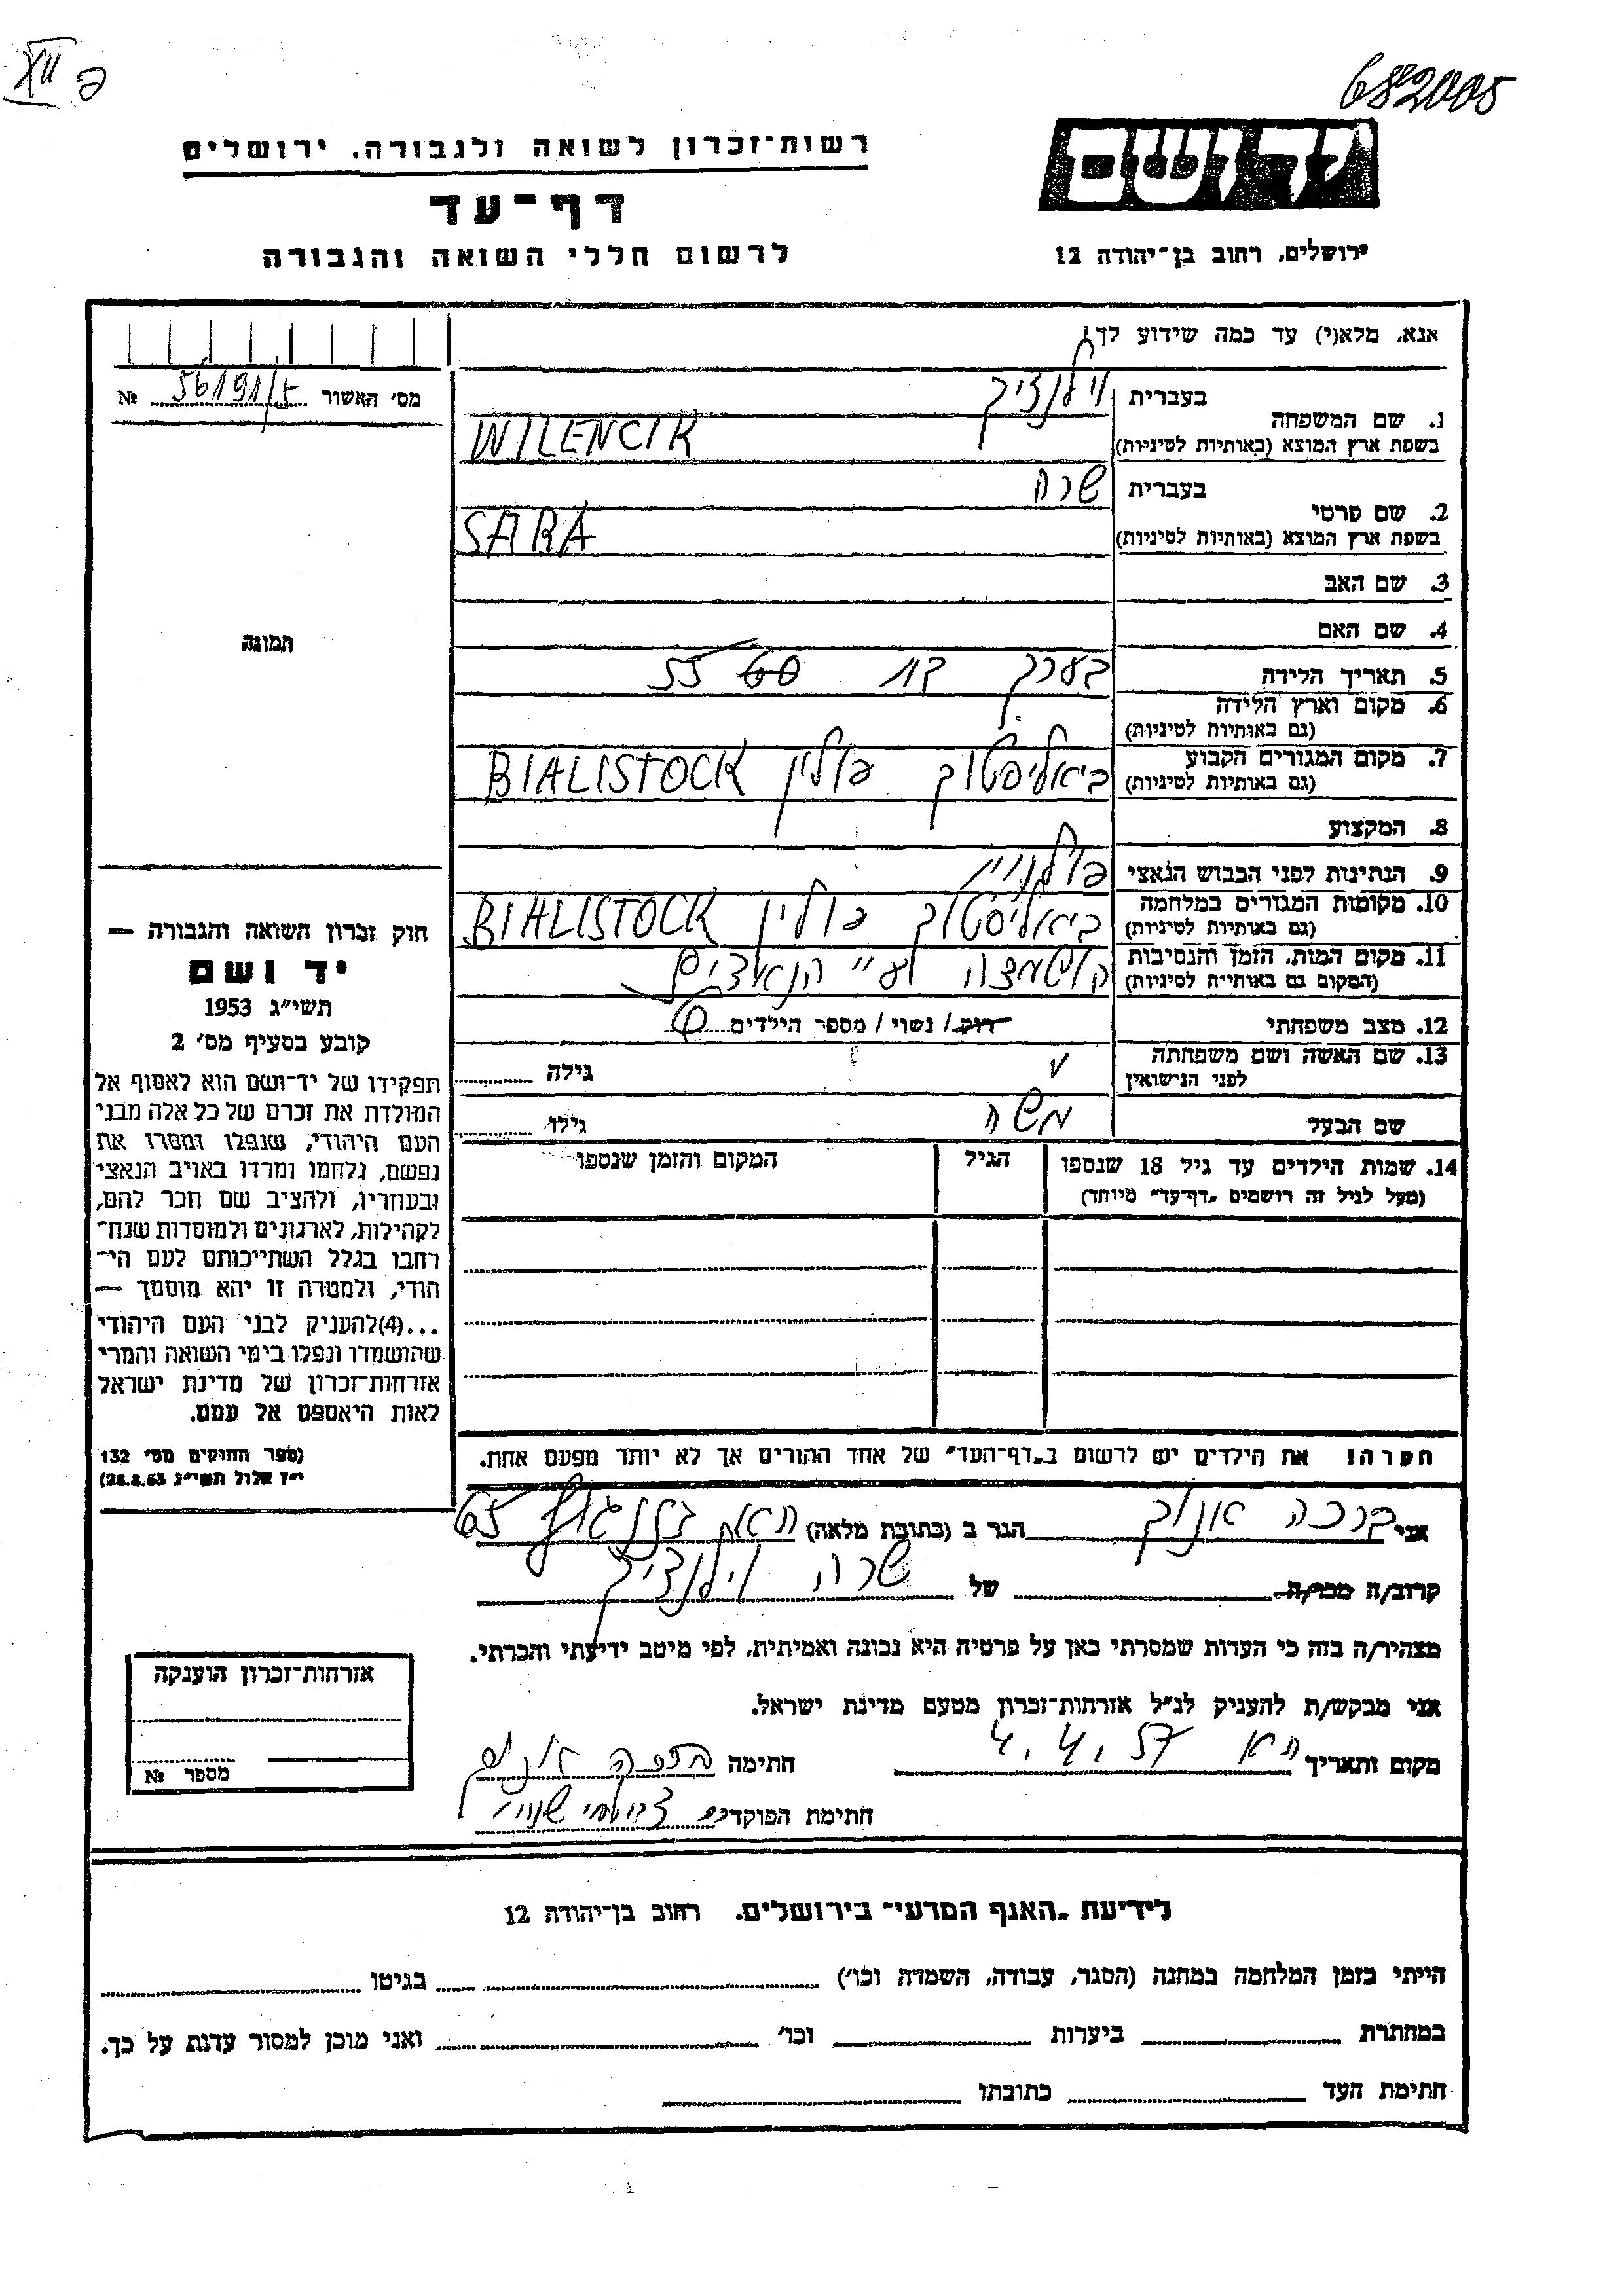 XII פ
682005
רשות־זכרון לשואה ולגבורה, ירושלים
דף־עד
לרשום חללי השואה והגבורה
יד ושם
ירושלים, רחוב בן־יהודה 12
אנא, מלא(י) עד כמה שידוע לך!
מס' האשור 56191/5 №
1. שם המשפחה בעברית וילנציק
בשפת ארץ המוצא (באותיות לטיניות) WILENCIK
2. שם פרטי בעברית שרה
בשפת ארץ המוצא (באותיות לטיניות) SARA
3. שם האב
4. שם האם
5. תאריך הלידה בערך בת 60 55
6. מקום וארץ הלידה
(גם באותיות לטיניות)
7. מקום המגורים הקבוע ביאליסטוק פולין BIALISTOCK
(גם באותיות לטיניות)
8. המקצוע
9. הנתינות לפני הכבוש הנאצי
10. מקומות המגורים במלחמה ביאליסטוק פולין BIALISTOCK
(גם באותיות לטיניות)
11. מקום המות, הזמן והנסיבות הושמדה ע"י הנאצים
(המקום גם באותיות לטיניות)
12. מצב משפחתי רוק/ נשוי / מספר הילדים
13. שם האשה ושם משפחתה
לפני הנישואין
גילה
שם הבעל משה גילו
14. שמות הילדים עד גיל 18 שנספו
(מעל לגיל זה רושמים „דף־עד" מיוחד)
הגיל
המקום והזמן שנספו
תמונה
חוק זכרון השואה והגבורה —
יד ושם
תשי״ג 1953
קובע בסעיף מס׳ 2
תפקידו של יד־ושם הוא לאסוף אל
המולדת את זכרם של כל אלה מבני
העם היהודי, שנפלו ומסרו את
נפשם, נלחמו ומרדו באויב הנאצי
ובעוזריו, ולהציב שם וזכר להם,
לקהילות, לארגונים ולמוסדות שנח־
רחבו בגלל השתייכותם לעם הי־
הודי, ולמטרה זו יהא מוסמך —
...(4)להעניק לבני העם היהודי
שהושמדו ונפלו בימי השואה והמרי
אזרחות־זכרון של מדינת ישראל
לאות היאספם אל עמם.
(ספר החוקים מס׳ 132
י״ז אלול תשי״ג 28.8.53)
הערה! את הילדים יש לרשום ב„דף־העד" של אחד ההורים אך לא יותר מפעם אחת.
אני ברכה הגר ב (כתובת מלאה) 65
קרוב/ה מכר/ה של שרה וילנציק
מצהיר/ה בזה כי העדות שמסרתי כאן על פרטיה היא נכונה ואמיתית, לפי מיטב ידיעתי והכרתי.
אני מבקש/ת להעניק לנ״ל אזרחות־זכרון מטעם מדינת ישראל.
מקום ותאריך 4.4.57 חתימה
חתימת הפוקד
אזרחות־זכרון הוענקה
מספר №
לידיעת „האגף המדעי" בירושלים. רחוב בן־יהודה 12
הייתי בזמן המלחמה במחנה (הסגר, עבודה, השמדה וכו׳) בגיטו
במחתרת ביערות וכו׳ ואני מוכן למסור עדות על כך.
חתימת העד כתובתו